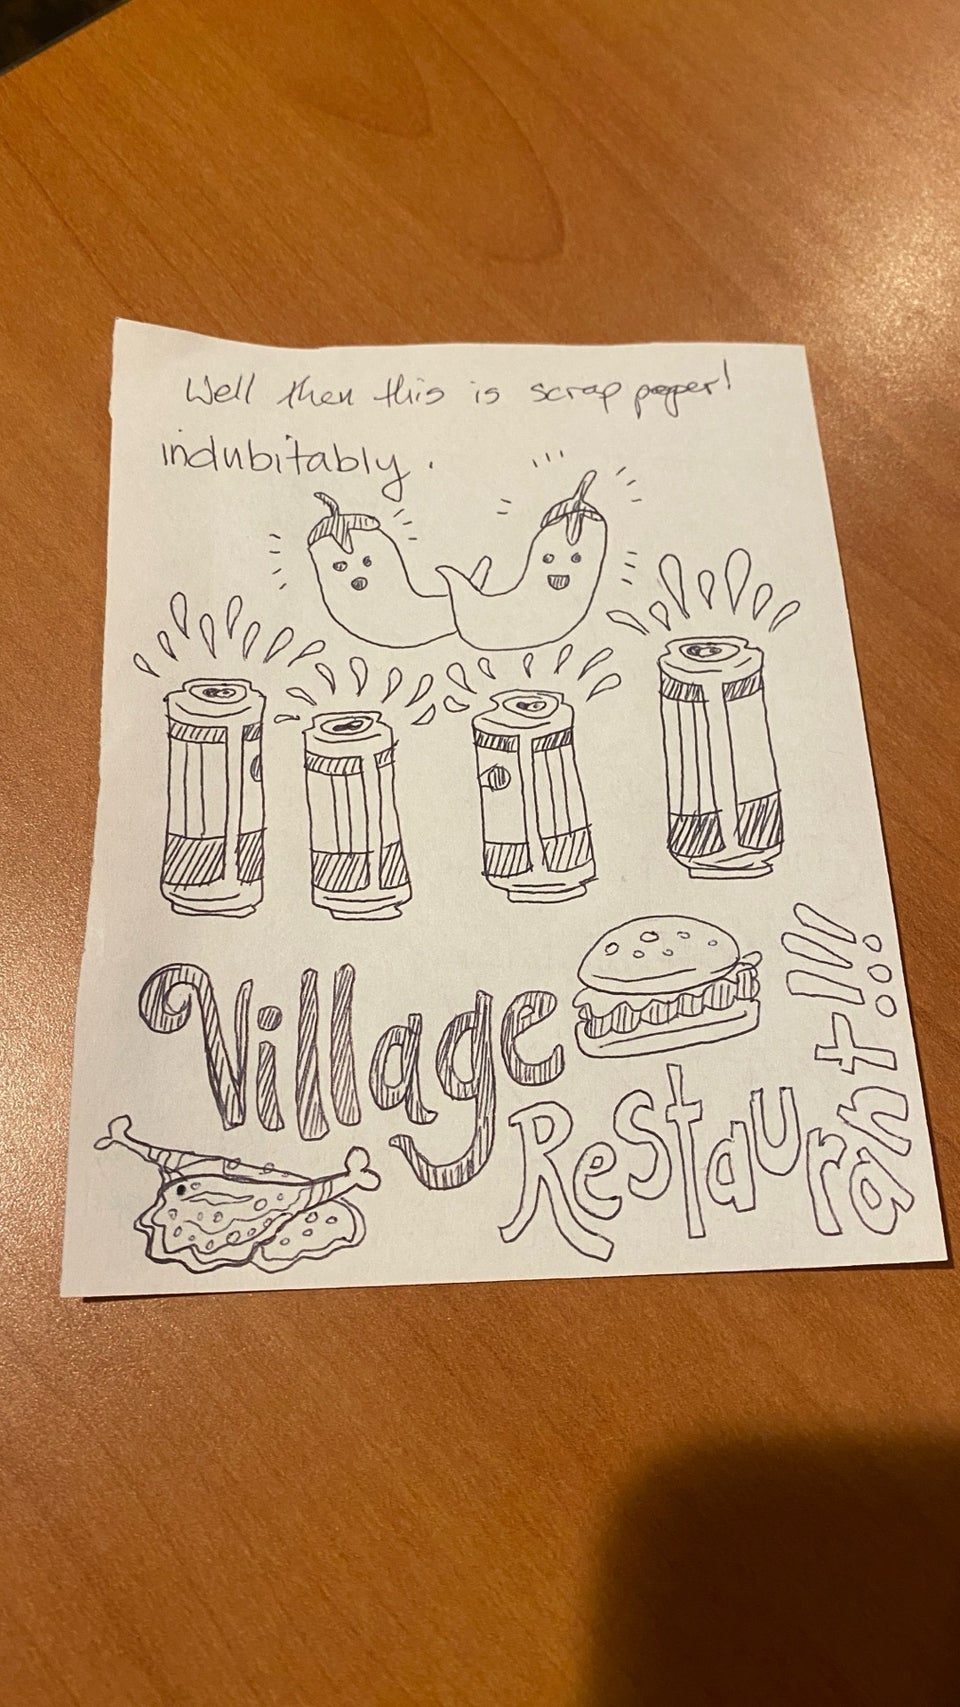 Well then this is scrap paper!
indubitably.
Village
Restaurant!!!